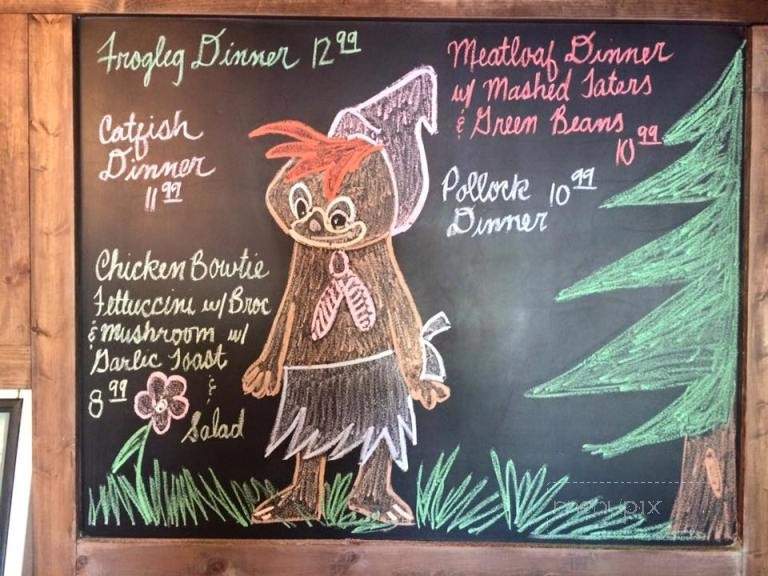 Frogleg Dinner 12 99
Catfish
Dinner
11 99
Chicken Bowtie
Fettuccini w/ Broc
& Mushroom w/
Garlic Toast
8 99
&
Salad
Meatloaf Dinner
w/ Mashed Taters
& Green Beans
10 99
Pollock 10 99
Dinner
menupix